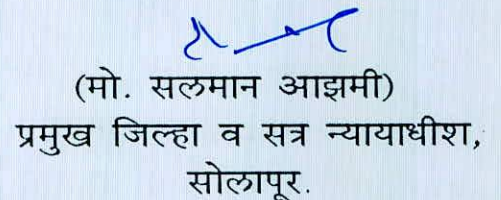 (मो. सलमान आझमी)
प्रमुख जिल्हा व सत्र न्यायाधीश,
सोलापूर.